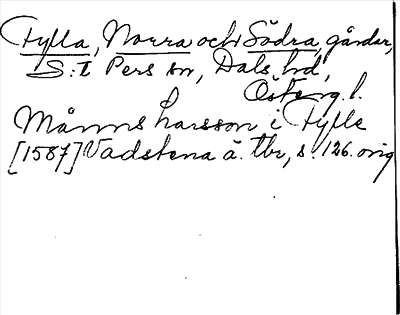 Fylla, Norra och Södra, gårdar,
S:t Pers sn, Dals hd,
Österg. l.
Måns Larsson i Fylle
[1587] Vadstena ä. tbr, s. 126. orig